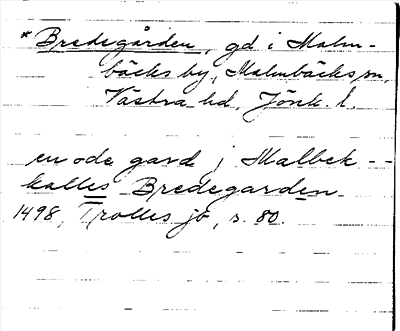 *Bredegården, gd i Malm-
bäcks by, Malmbäcks sn,
Västra hd, Jönk. l.
en öde gard i Malbek - -
kalles Bredegarden
1498, Trolles jb, s. 80.